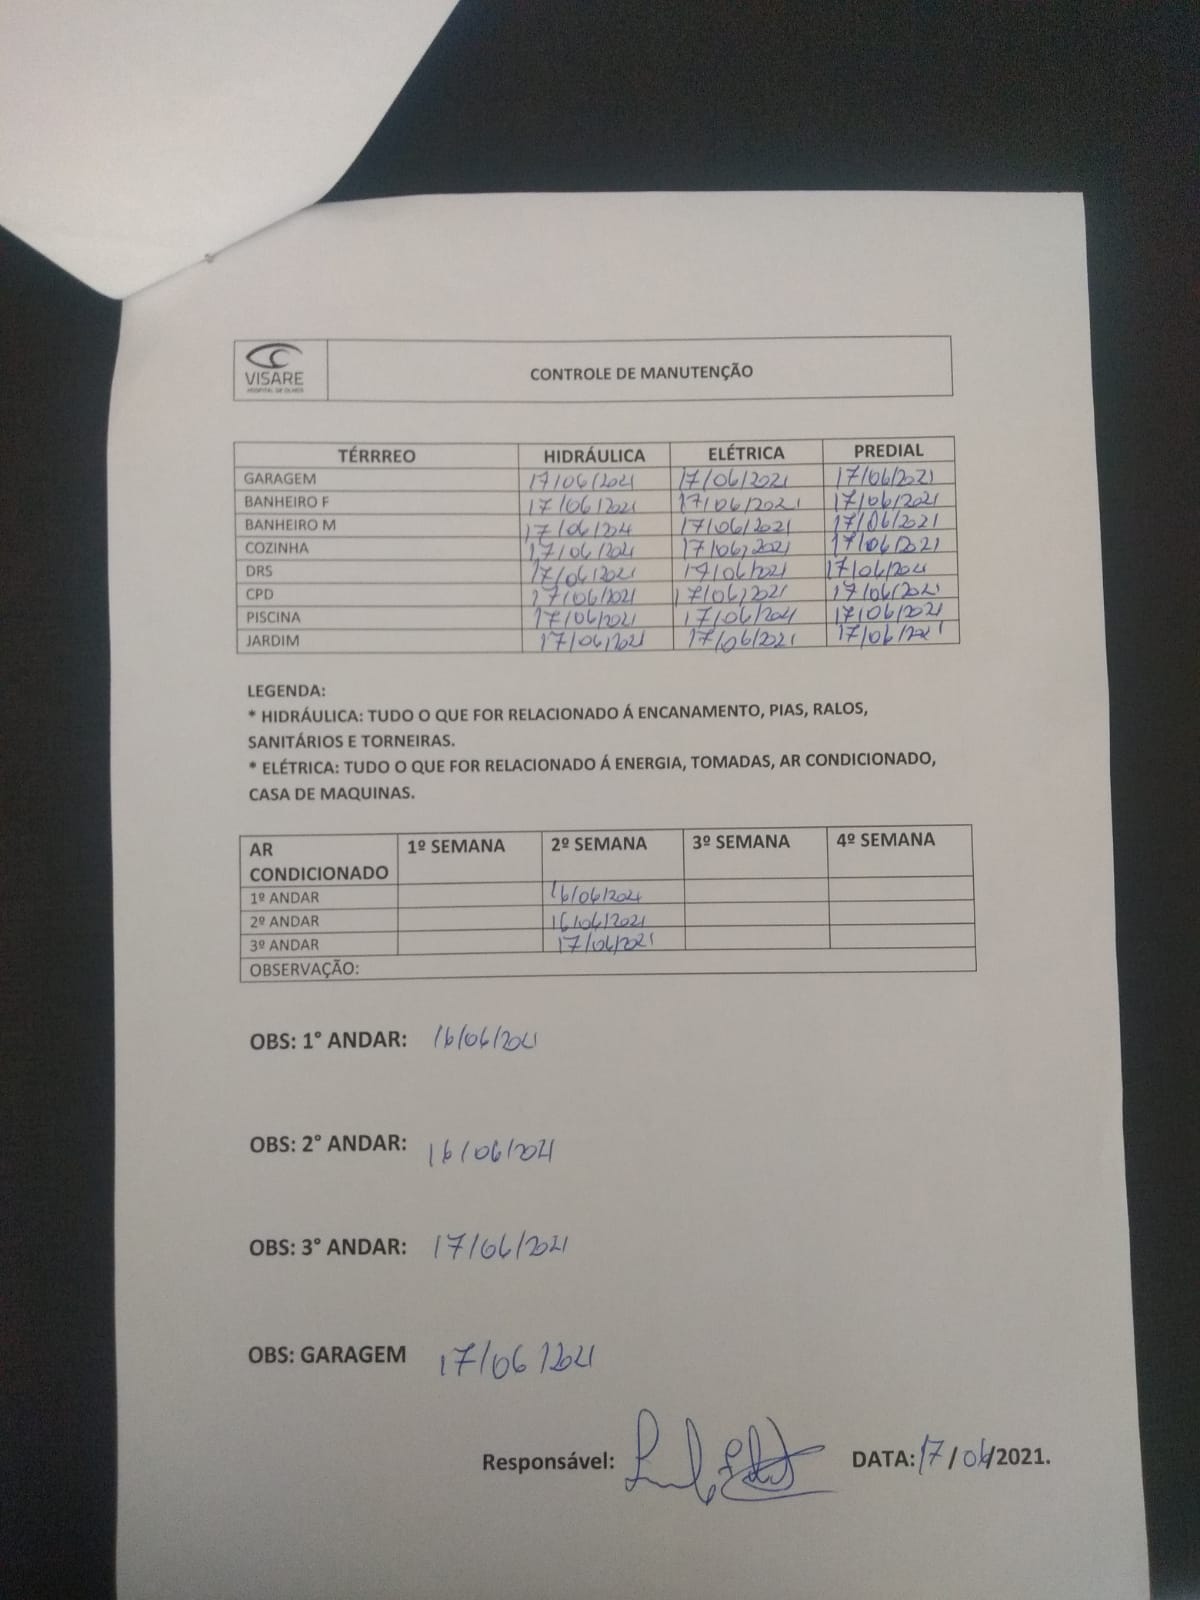 VISARE
HOSPITAL DE OLHOS
CONTROLE DE MANUTENÇÃO
TÉRRREO HIDRÁULICA ELÉTRICA PREDIAL
GARAGEM 17/06/2021 17/06/2021 17/06/2021
BANHEIRO F 17/06/2021 17/06/2021 17/06/2021
BANHEIRO M 17/06/2021 17/06/2021 17/06/2021
COZINHA 17/06/2021 17/06/2021 17/06/2021
DRS 17/06/2021 17/06/2021 17/06/2021
CPD 17/06/2021 17/06/2021 17/06/2021
PISCINA 17/06/2021 17/06/2021 17/06/2021
JARDIM 17/06/2021 17/06/2021 17/06/2021
LEGENDA:
* HIDRÁULICA: TUDO O QUE FOR RELACIONADO Á ENCANAMENTO, PIAS, RALOS,
SANITÁRIOS E TORNEIRAS.
* ELÉTRICA: TUDO O QUE FOR RELACIONADO Á ENERGIA, TOMADAS, AR CONDICIONADO,
CASA DE MAQUINAS.
AR CONDICIONADO 1º SEMANA 2º SEMANA 3º SEMANA 4º SEMANA
1º ANDAR 16/06/2021
2º ANDAR 16/06/2021
3º ANDAR 17/06/2021
OBSERVAÇÃO:
OBS: 1° ANDAR: 16/06/2021
OBS: 2° ANDAR: 16/06/2021
OBS: 3° ANDAR: 17/06/2021
OBS: GARAGEM 17/06/2021
Responsável: DATA: 17/06/2021.